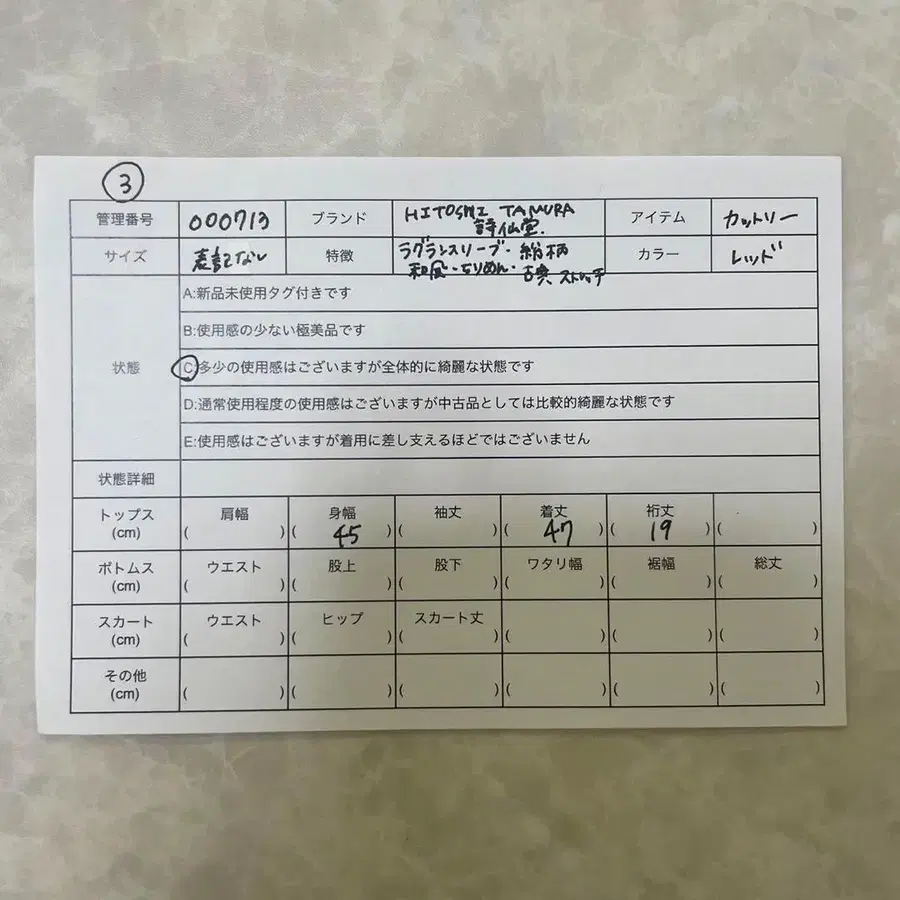 ③
管理番号 000713 ブランド HITOSHI TAMURA アイテム カットソー
詩仙堂.
サイズ 表記なし 特徴 ラグランスリーブ・総柄 カラー レッド
和風・ちりめん・古典 ストレッチ
A:新品未使用タグ付きです
B:使用感の少ない極美品です
状態 C:多少の使用感はございますが全体的に綺麗な状態です
D:通常使用程度の使用感はございますが中古品としては比較的綺麗な状態です
E:使用感はございますが着用に差し支えるほどではございません
状態詳細
トップス 肩幅 身幅 袖丈 着丈 裄丈
(cm) ( ) ( 45 ) ( ) ( 47 ) ( 19 ) ( )
ボトムス ウエスト 股上 股下 ワタリ幅 裾幅 総丈
(cm) ( ) ( ) ( ) ( ) ( ) ( )
スカート ウエスト ヒップ スカート丈
(cm) ( ) ( ) ( ) ( ) ( ) ( )
その他
(cm) ( ) ( ) ( ) ( ) ( ) ( )